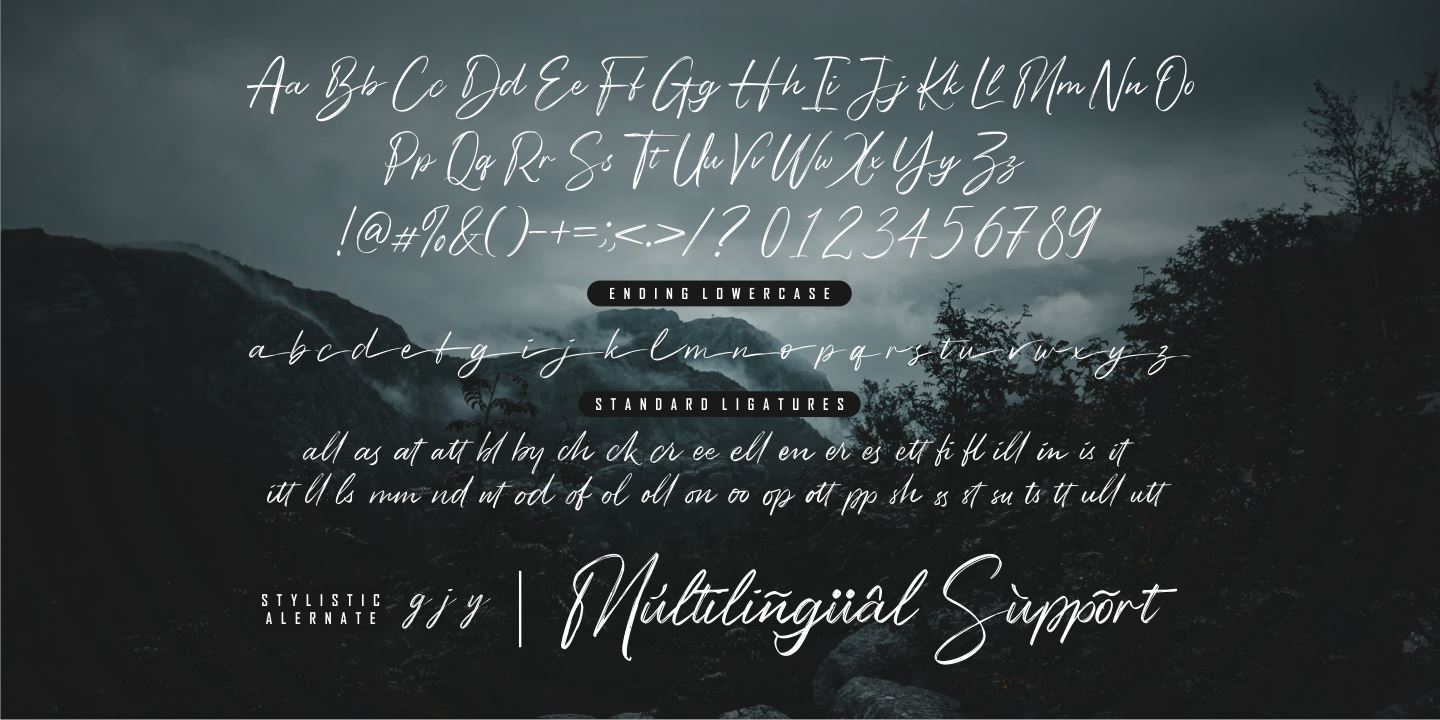 Aa Bb Cc Dd Ee Ff Gg Hh Ii Jj Kk Ll Mm Nn Oo
Pp Qq Rr Ss Tt Uu Vv Ww Xx Yy Zz
!@#%&()-+=;:<.>/? 0123456789
ENDING LOWERCASE
a b c d e f g i j k l m n o p q r s t u v w x y z
STANDARD LIGATURES
all as at att bl by ch ck cr ee ell en er es ett fi fl ill in is it
itt ll ls mm nd nt od of ol oll on oo op ott pp sh ss st su ts tt ull utt
STYLISTIC
ALERNATE
g j y
Múltilíñgüâl Sùppõrt